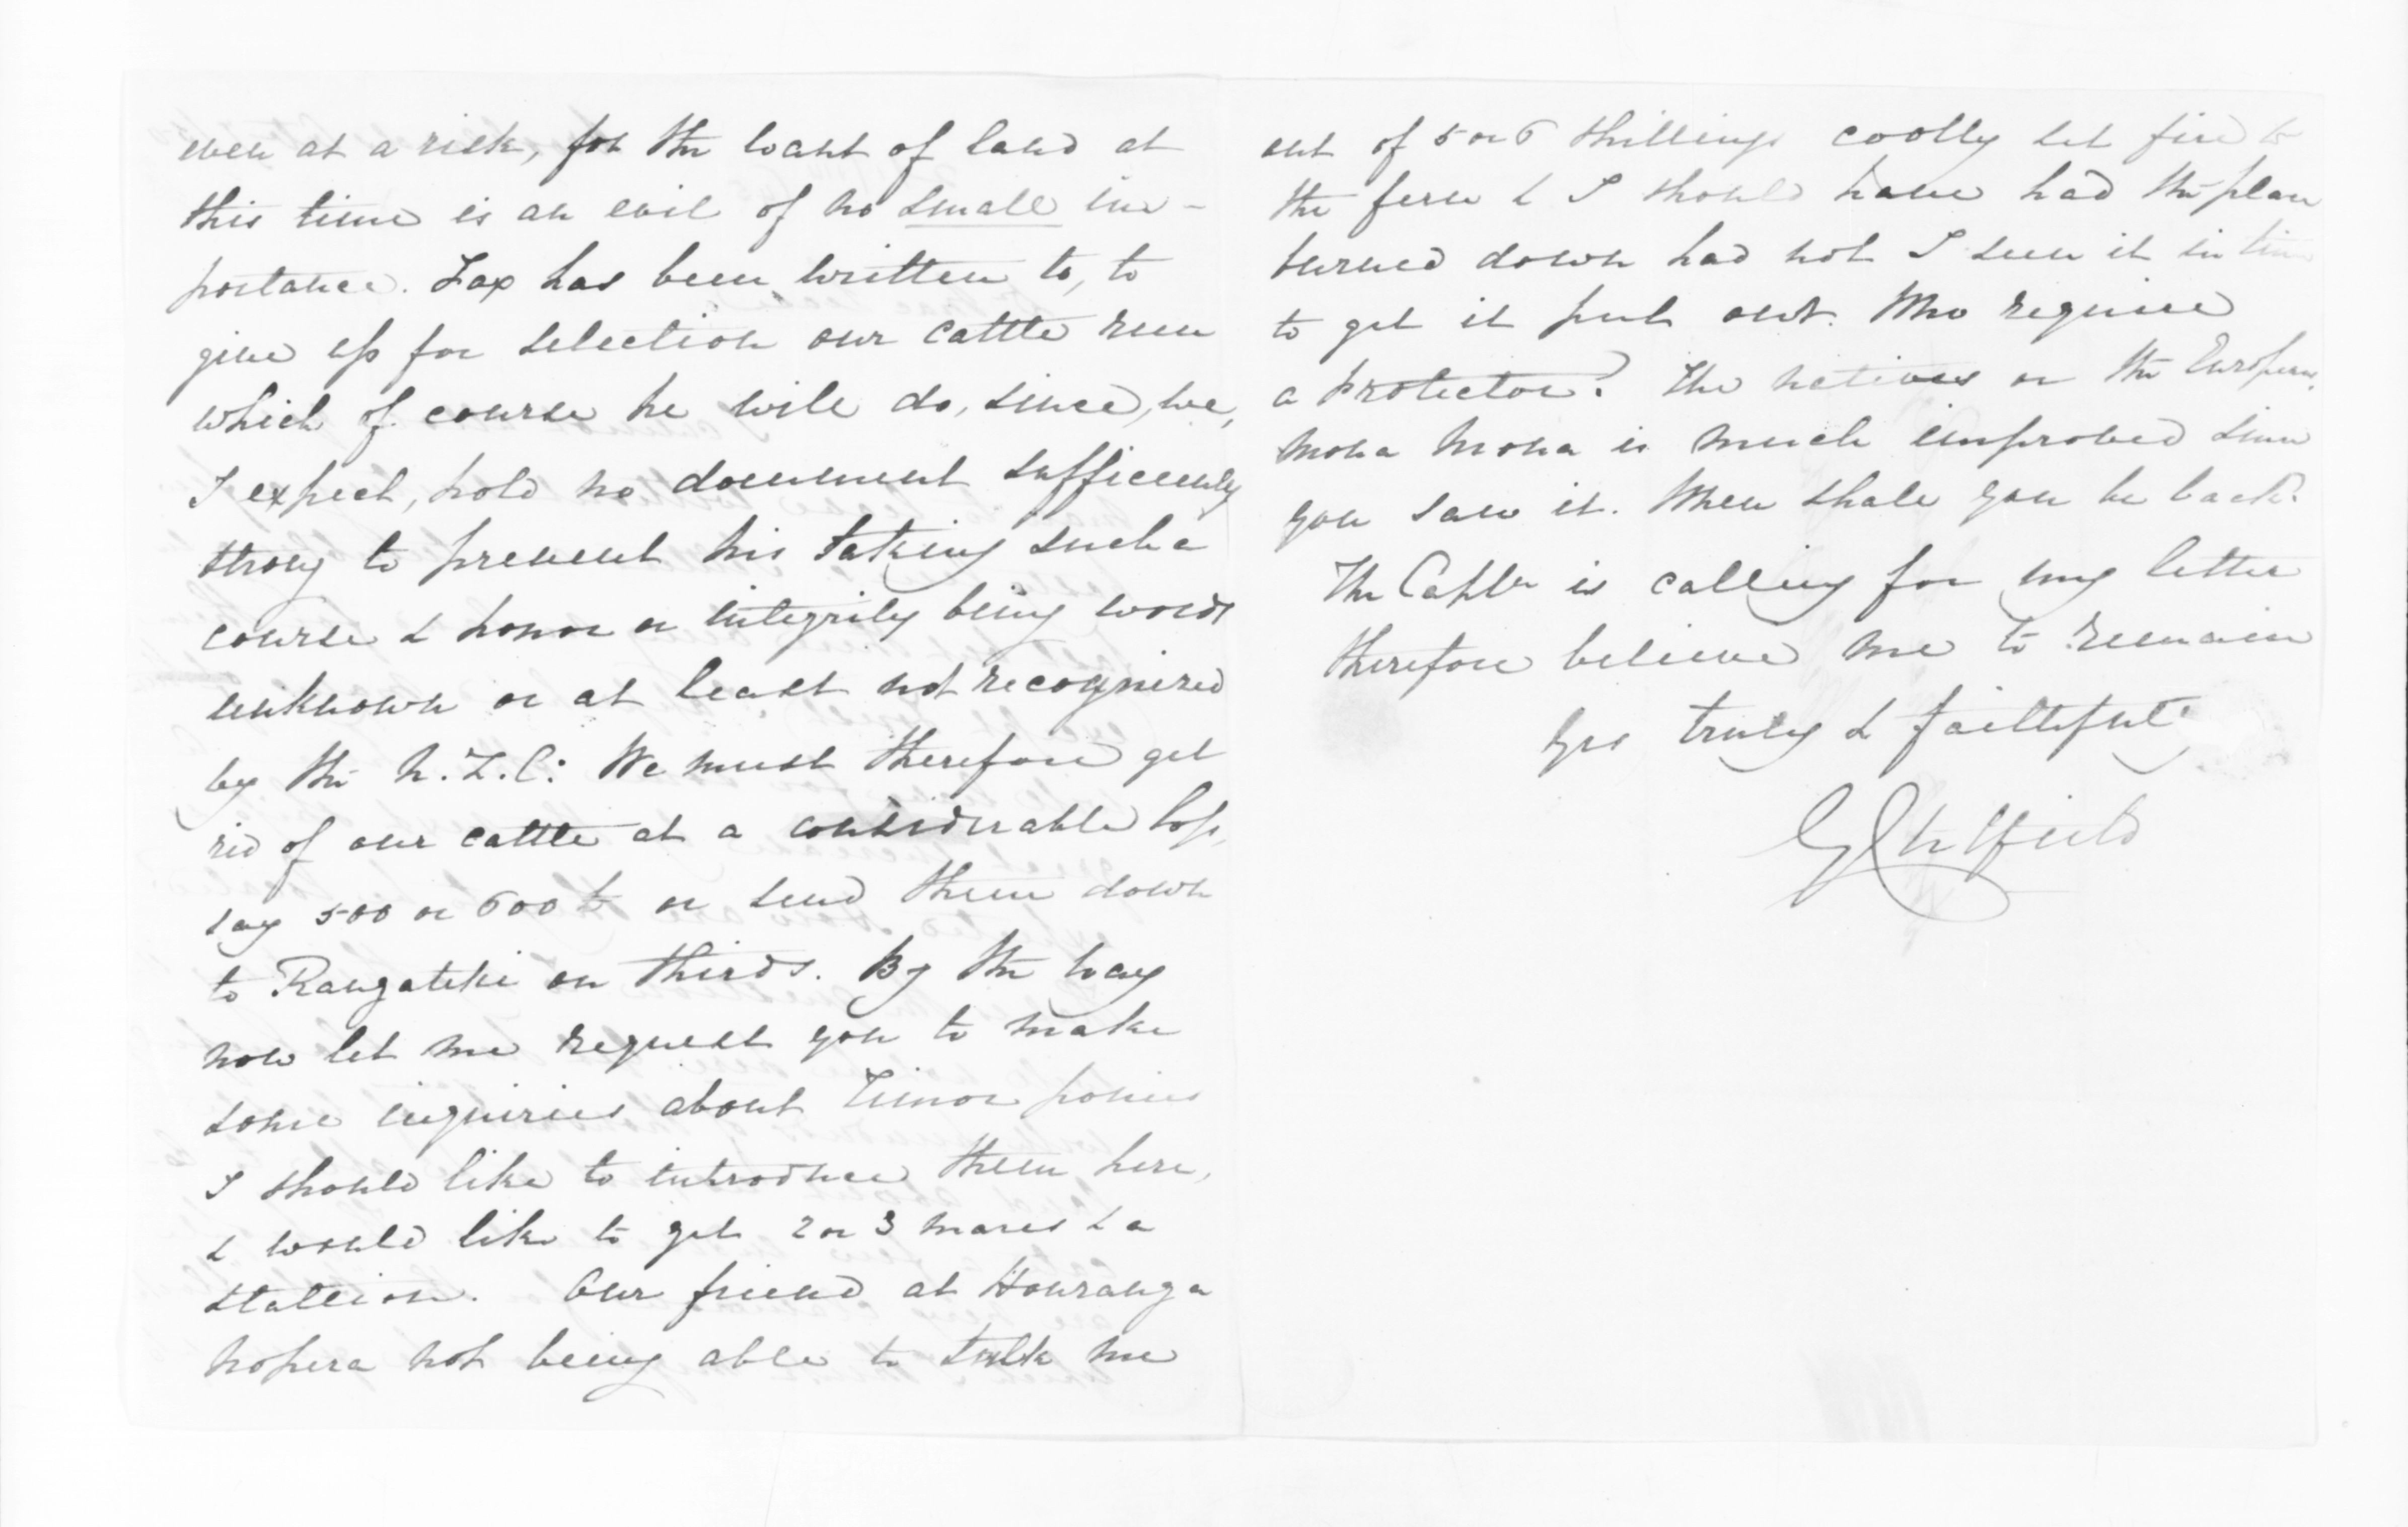 even at a risk, for the want of land at
this time is an evil of no small im-
portance. Fox has been written to, to
give up for selection our cattle run
which of course he will do, since, we,
I expect, hold no document sufficiently
strong to prevent his taking such a
course & honor or integrity being words
unknown or at least not recognized
by the N.Z.C: We must therefore get
rid of our cattle at a considerable loss,
say 500 or 600 £ or send them down
to Rangatiki on thirds. By the way
now let me request you to make
some inquiries about Timor ponies
I should like to introduce them here,
& would like to get 2 or 3 mares & a
stallion. Our friend at Houranga
nopera not being able to talk me
out of 5 or 6 shillings coolly set fire to
the fern & I should have had the place
burned down had not I seen it in time
to get it put out. Who require
a protector? The natives or the Europeans.
Moua Moua is much improved since
you saw it. When shall you be back?
The Captn is calling for my letter
therefore believe me to remain
Yrs truly & faithful